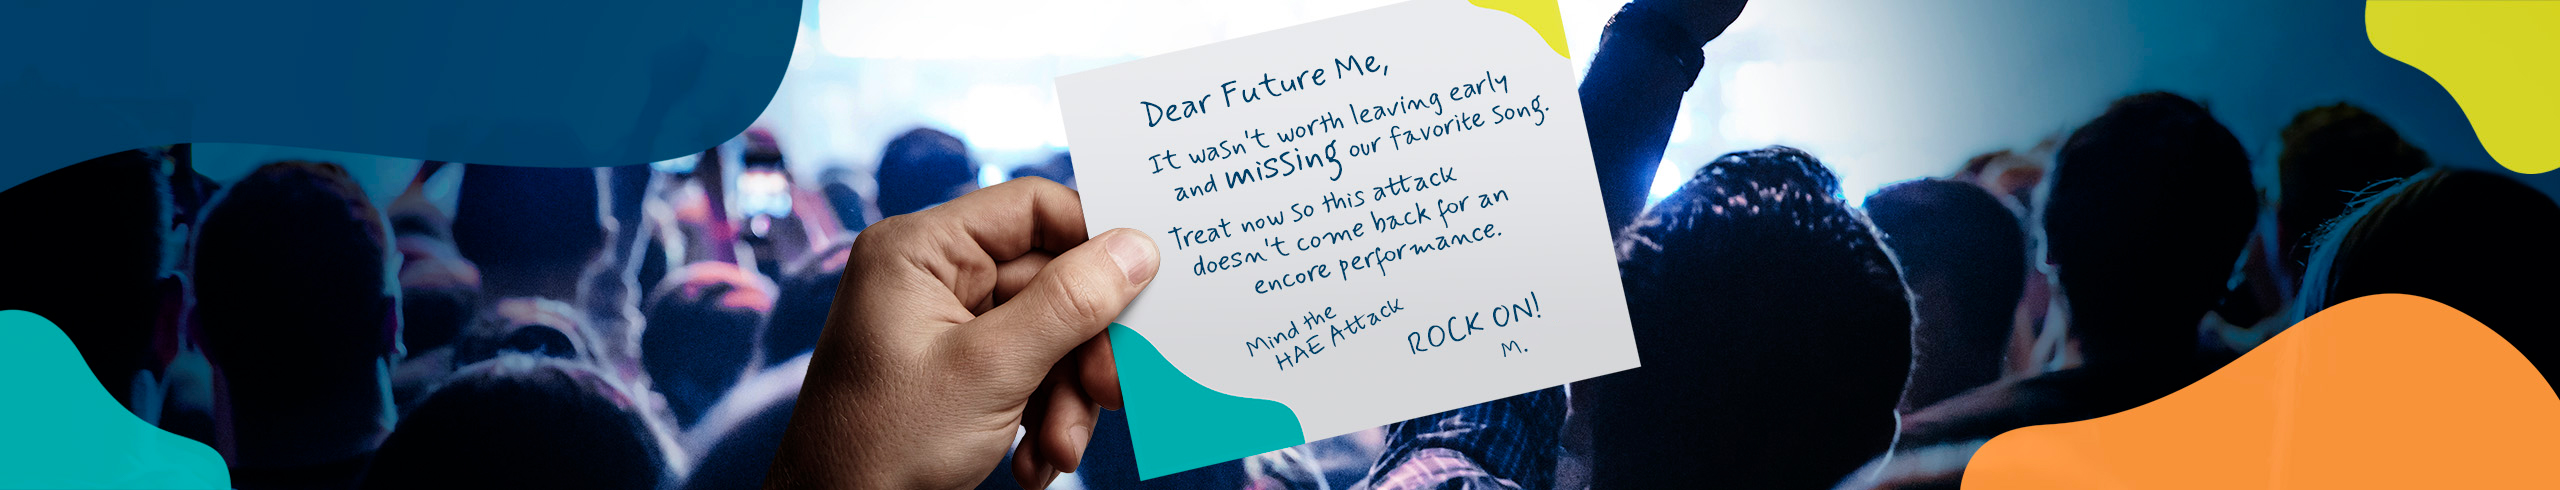 Dear Future Me,
It wasn't worth leaving early
and missing our favorite song.
Treat now so this attack
doesn't come back for an
encore performance.
Mind the
HAE Attack
ROCK ON!
M.